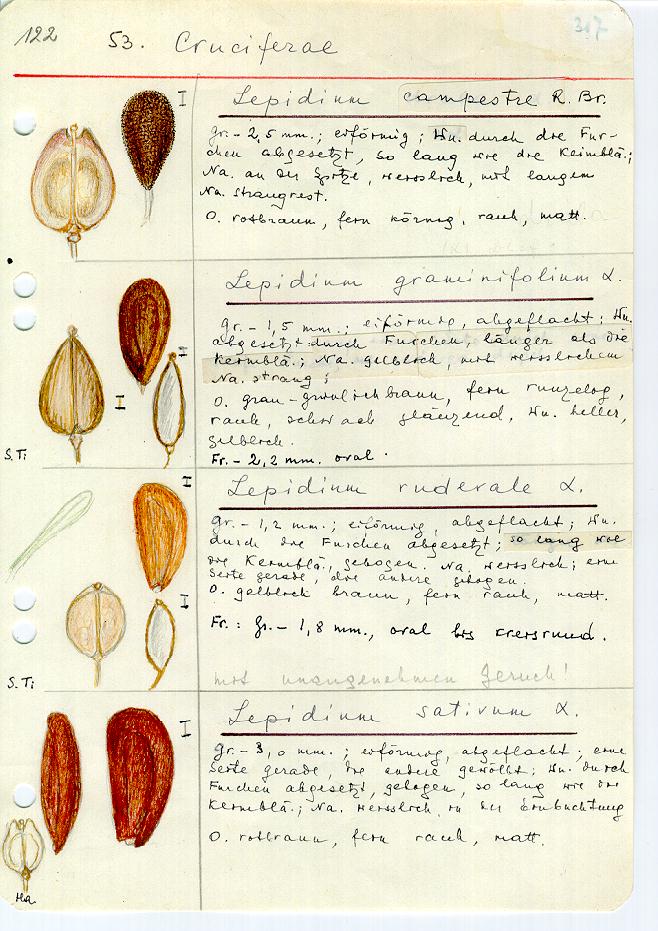 122 53. Cruciferae 317
I Lepidium campestre R. Br.
gr. - 2,5 mm.; eiförmig; Wu. durch die Fur-
chen abgesetzt, so lang wie die Keimblä.;
Na. an der Spitze, weisslich, mit langem
Na. strangrest.
O. rotbraun, fein körnig, rauh, matt.
Lepidium graminifolium L.
gr. - 1,5 mm.; eiförmig, abgeflacht; Wu.
abgesetzt durch Furchen, länger als die
Keimblä.; Na. gelblich, mit weisslichem
Na. strang;
O. grau-grünlichbraun, fein runzelig,
rauh, schwach glänzend, Wu. heller,
gelblich.
Fr. - 2,2 mm. oval.
II
I
S.Ti
II Lepidium ruderale L.
gr. - 1,2 mm.; eiförmig, abgeflacht; Wu.
durch die Furchen abgesetzt; so lang wie
die Keimblä., gebogen. Na. weisslich; eine
Seite gerade, die andere gebogen.
O. gelblich braun, fein rauh, matt.
I Fr.: gr. - 1,8 mm., oval bis kreisrund.
mit unangenehmen Geruch!
S.Ti
I Lepidium sativum L.
gr. - 3,0 mm.; eiförmig, abgeflacht; eine
Seite gerade, die andere gewölbt; Wu. durch
Furchen abgesetzt, gebogen, so lang wie die
Keimblä.; Na. weisslich, in der Einbuchtung
O. rotbraun, fein rauh, matt.
Ha.